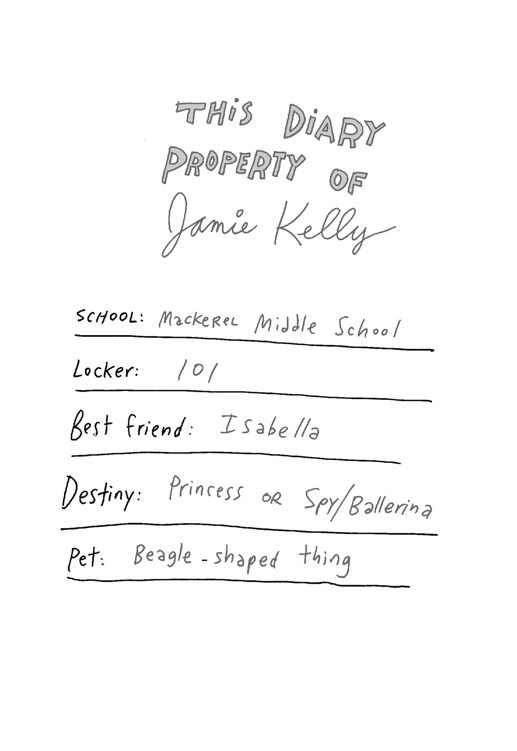 THiS DiARY
PROPERTY OF
Jamie Kelly
SCHOOL: MackeReL Middle School
Locker: 101
Best friend: Isabella
Destiny: Princess OR Spy/Ballerina
Pet: Beagle-shaped thing